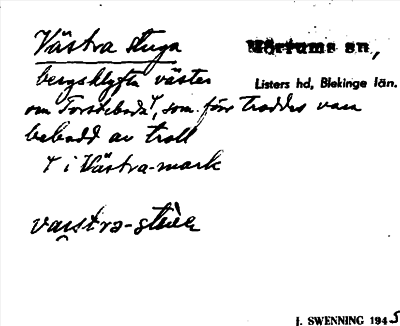 Västra stuga
Mörrums sn,
bergsklyfta väster
Listers hd, Blekinge län.
om Torsteboda ᛉ, som förr troddes vara
bebodd av troll
i Västra-mark
J. SWENNING 1945